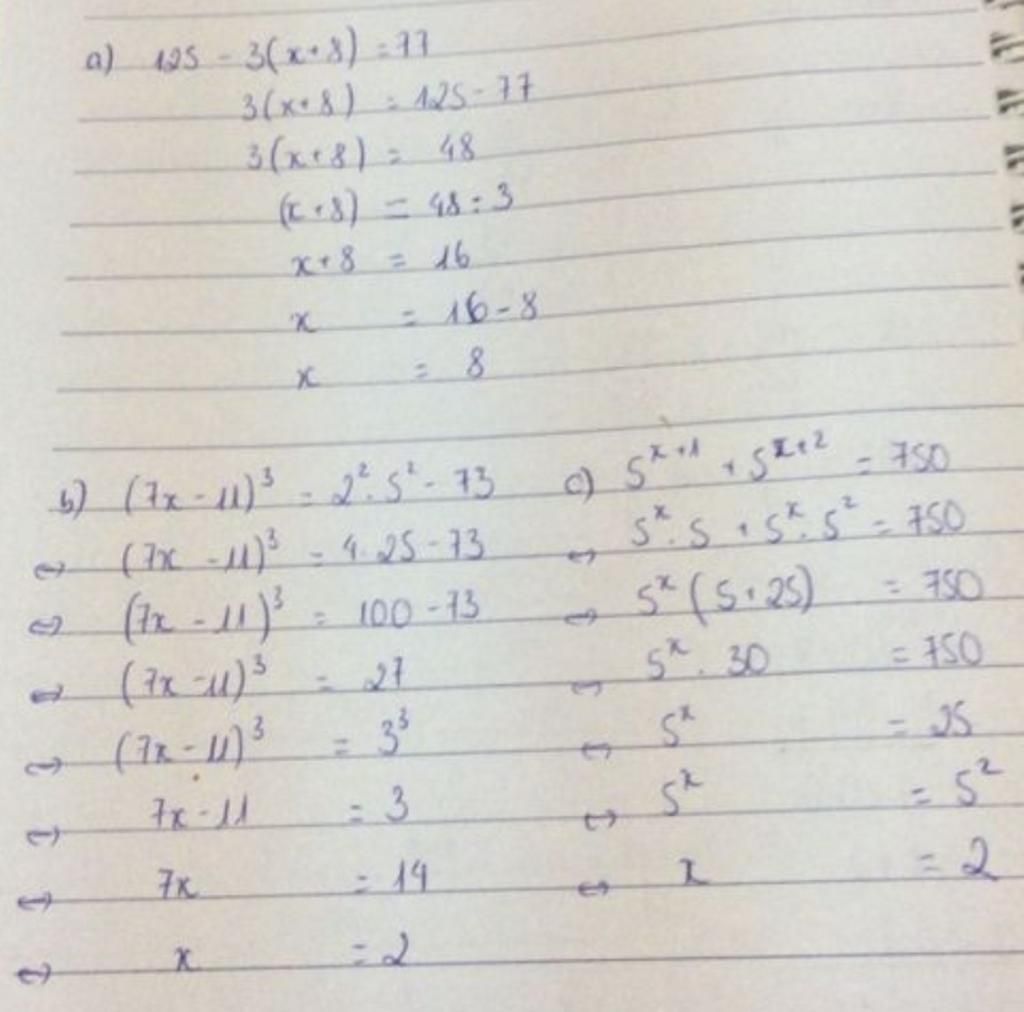 a) 125 - 3(x+8) = 77
3(x+8) = 125 - 77
3(x+8) = 48
(x+8) = 48 : 3
x+8 = 16
x = 16 - 8
x = 8
b) (7x - 11)³ = 2².5² - 73
⇔ (7x - 11)³ = 4.25 - 73
⇔ (7x - 11)³ = 100 - 73
⇔ (7x - 11)³ = 27
⇔ (7x - 11)³ = 3³
⇔ 7x - 11 = 3
⇔ 7x = 14
⇔ x = 2
c) 5ˣ⁺¹ + 5ˣ⁺² = 750
⇔ 5ˣ.5 + 5ˣ.5² = 750
⇔ 5ˣ(5+25) = 750
⇔ 5ˣ.30 = 750
⇔ 5ˣ = 25
⇔ 5ˣ = 5²
⇔ x = 2